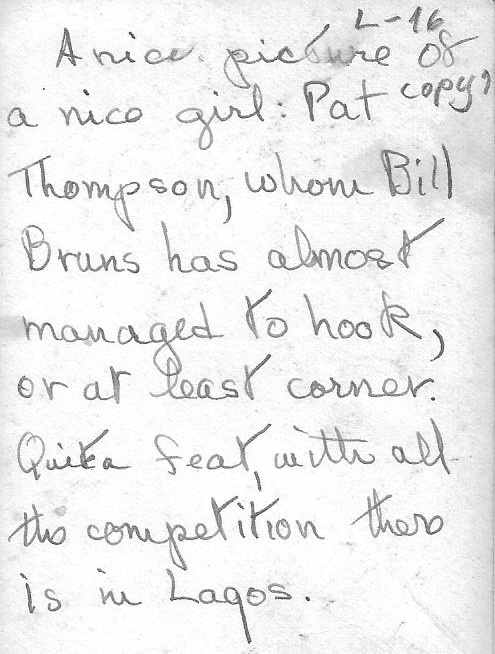 L-16
A nice picture of
a nice girl: Pat copy?
Thompson, whom Bill
Bruns has almost
managed to hook,
or at least corner.
Quite a feat, with all
the competition there
is in Lagos.